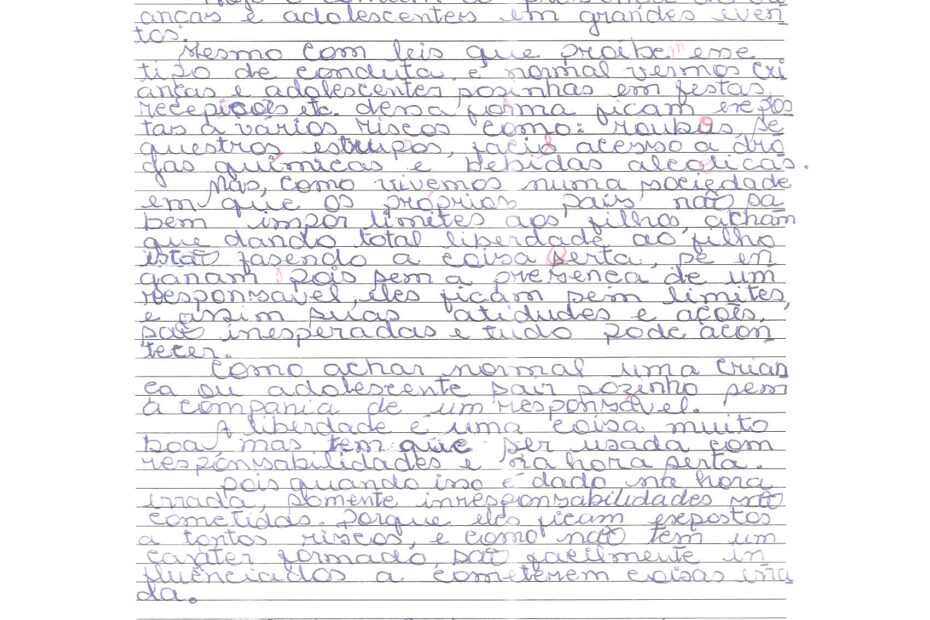 anças e adolescentes em grandes even
tos.
Mesmo com leis que proibem esse
tipo de conduta, e normal vermos cri
anças e adolescentes sosinhas em festas,
recepições etc. dessa forma ficam expos
tas a vários riscos como: roubos, se
questros estrupos, facio acesso a dro
gas químicas e bebidas alcolicas.
Mas, como vivemos numa sociedade
em que os próprios pais não sa
bem impor limites aos filhos, acham
que dando total liberdade ao filho
estão fasendo a coisa serta, se en
ganam pois sem a presença de um
responsavel, eles ficam sem limites,
e assim suas atidudes e açoês,
são inesperadas e tudo pode acon
tecer.
Como achar normal uma crian
ça ou adolescente sair sozinho sem
a compania de um responsável.
A liberdade e uma coisa muito
boa, mas tem que ser usada com
responsabilidades e na hora serta.
Pois quando isso é dado na hora
irrada, somente inresponsabilidades são
cometidas. Porque eles ficam expostos
a tantos riscos, e como não tem um
caráter formado, são facilmente in
fluênciados a cometerem coisas irra
da.